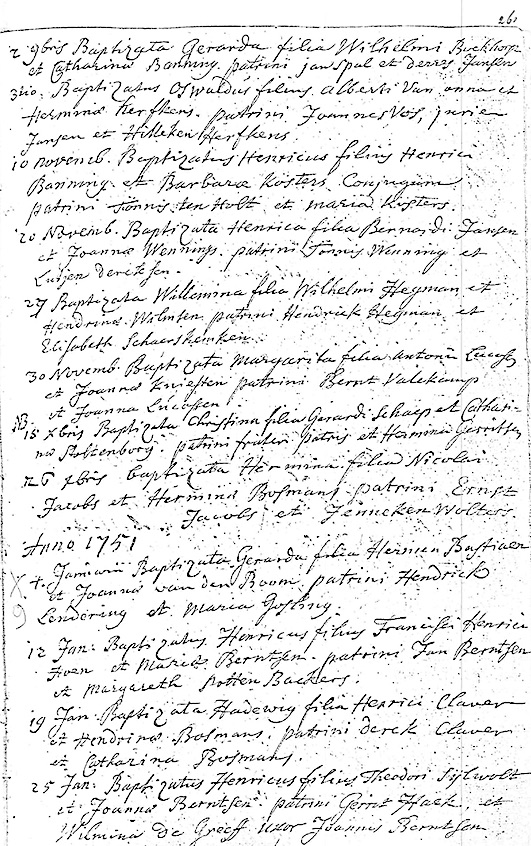 261
2 9bris Baptizata Gerarda filia Wilhelmi Buckhorst
et Catharina Banning. patrini jan Spal et derrs Jansen
3tio. Baptizatus Oswaldus filius Alberti Van anna et
Herminæ Herfkens. patrini Joannes Vos, jurien
Jansen et Hilleken Herfkens
10 novemb. Baptizatus Henricus filius Henrici
Banning et Barbaræ Kosters Conjugum
patrini Tonnis ten Holt et maria Kosters.
20 Novemb. Baptizata Henrica filia Bernardi Jansen
et Joannæ Wennings. patrini Tonnis Wenning et
Lutjen dercksen.
27 Baptizata Willemina filia Wilhelmi Hegman et
Hendrinæ Wilmsen patrini Hendrick Hegman et
Elisabeth
30 Novemb. Baptizata Margarita filia Antonii Lucassen
et Joannæ Kniesten patrini Bernt Valekamp
et Joanna Lucassen
15 Xbris Baptizata Christina filia Gerardi Schaep et Cathari-
næ Stoltenborg. patrini frater patris et Hermina Gerritsen
26 Xbris baptizata Hermina filia Nicolai
Jacobs et Herminæ Bosmans. patrini Ernst
Jacobs et Jenneken Wolters.
Anno 1751
X 4. Januarii Baptizata Gerarda filia Hermen Bastiaen
et Joanna van den Boom patrini Hendrick
Lendering et Maria Gosling
12 Jan: Baptizatus Henricus filius Francisci Henrici
Hoen et Mariæ Berntsen. patrini Jan Berntsen
et Margareth Rotten Backers.
19 Jan Baptizata Hadewig filia Henrici Claver
et Hendrinæ Bosmans. patrini derck Claver
et Catharina Bosmans.
25 Jan: Baptizatus Henricus filius Theodori Sylvolt
et Joannæ Berntsen. patrini Gerrit Haek et
Wilmina de Greeff uxor Joannis Berntsen